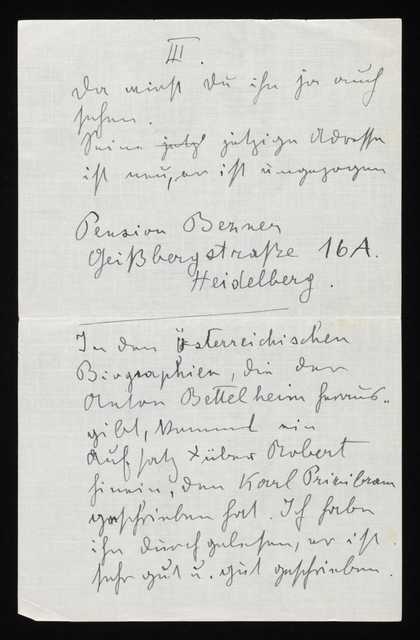 III.
Da wirst du ihn ja auch
sehen.
Seine jetzt jetzige Adresse
ist neu, er ist umgezogen
Pension Bezner
Geißbergstraße 16A.
Heidelberg.
In den österreichischen
Biographien, die der
Anton Bettelheim heraus-
gibt, kommt ein
Aufsatz über Robert
hinein, den Karl Pribram
geschrieben hat. Ich habe
ihn durchgelesen, er ist
sehr gut u. gut geschrieben.